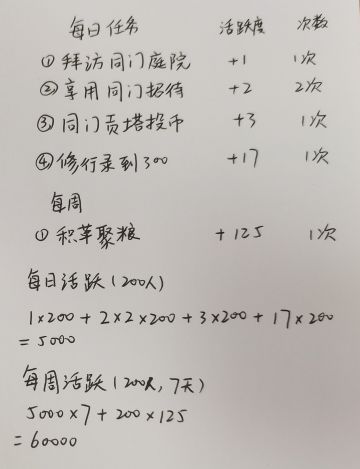 每日任务 活跃度 次数
① 拜访同门庭院 +1 1次
② 享用同门招待 +2 2次
③ 同门贡塔投币 +3 1次
④ 修行录到300 +17 1次
每周
① 积草聚粮 +125 1次
每日活跃(200人)
1×200 + 2×2×200 + 3×200 + 17×200
= 5000
每周活跃(200人, 7天)
5000×7 + 200×125
= 60000